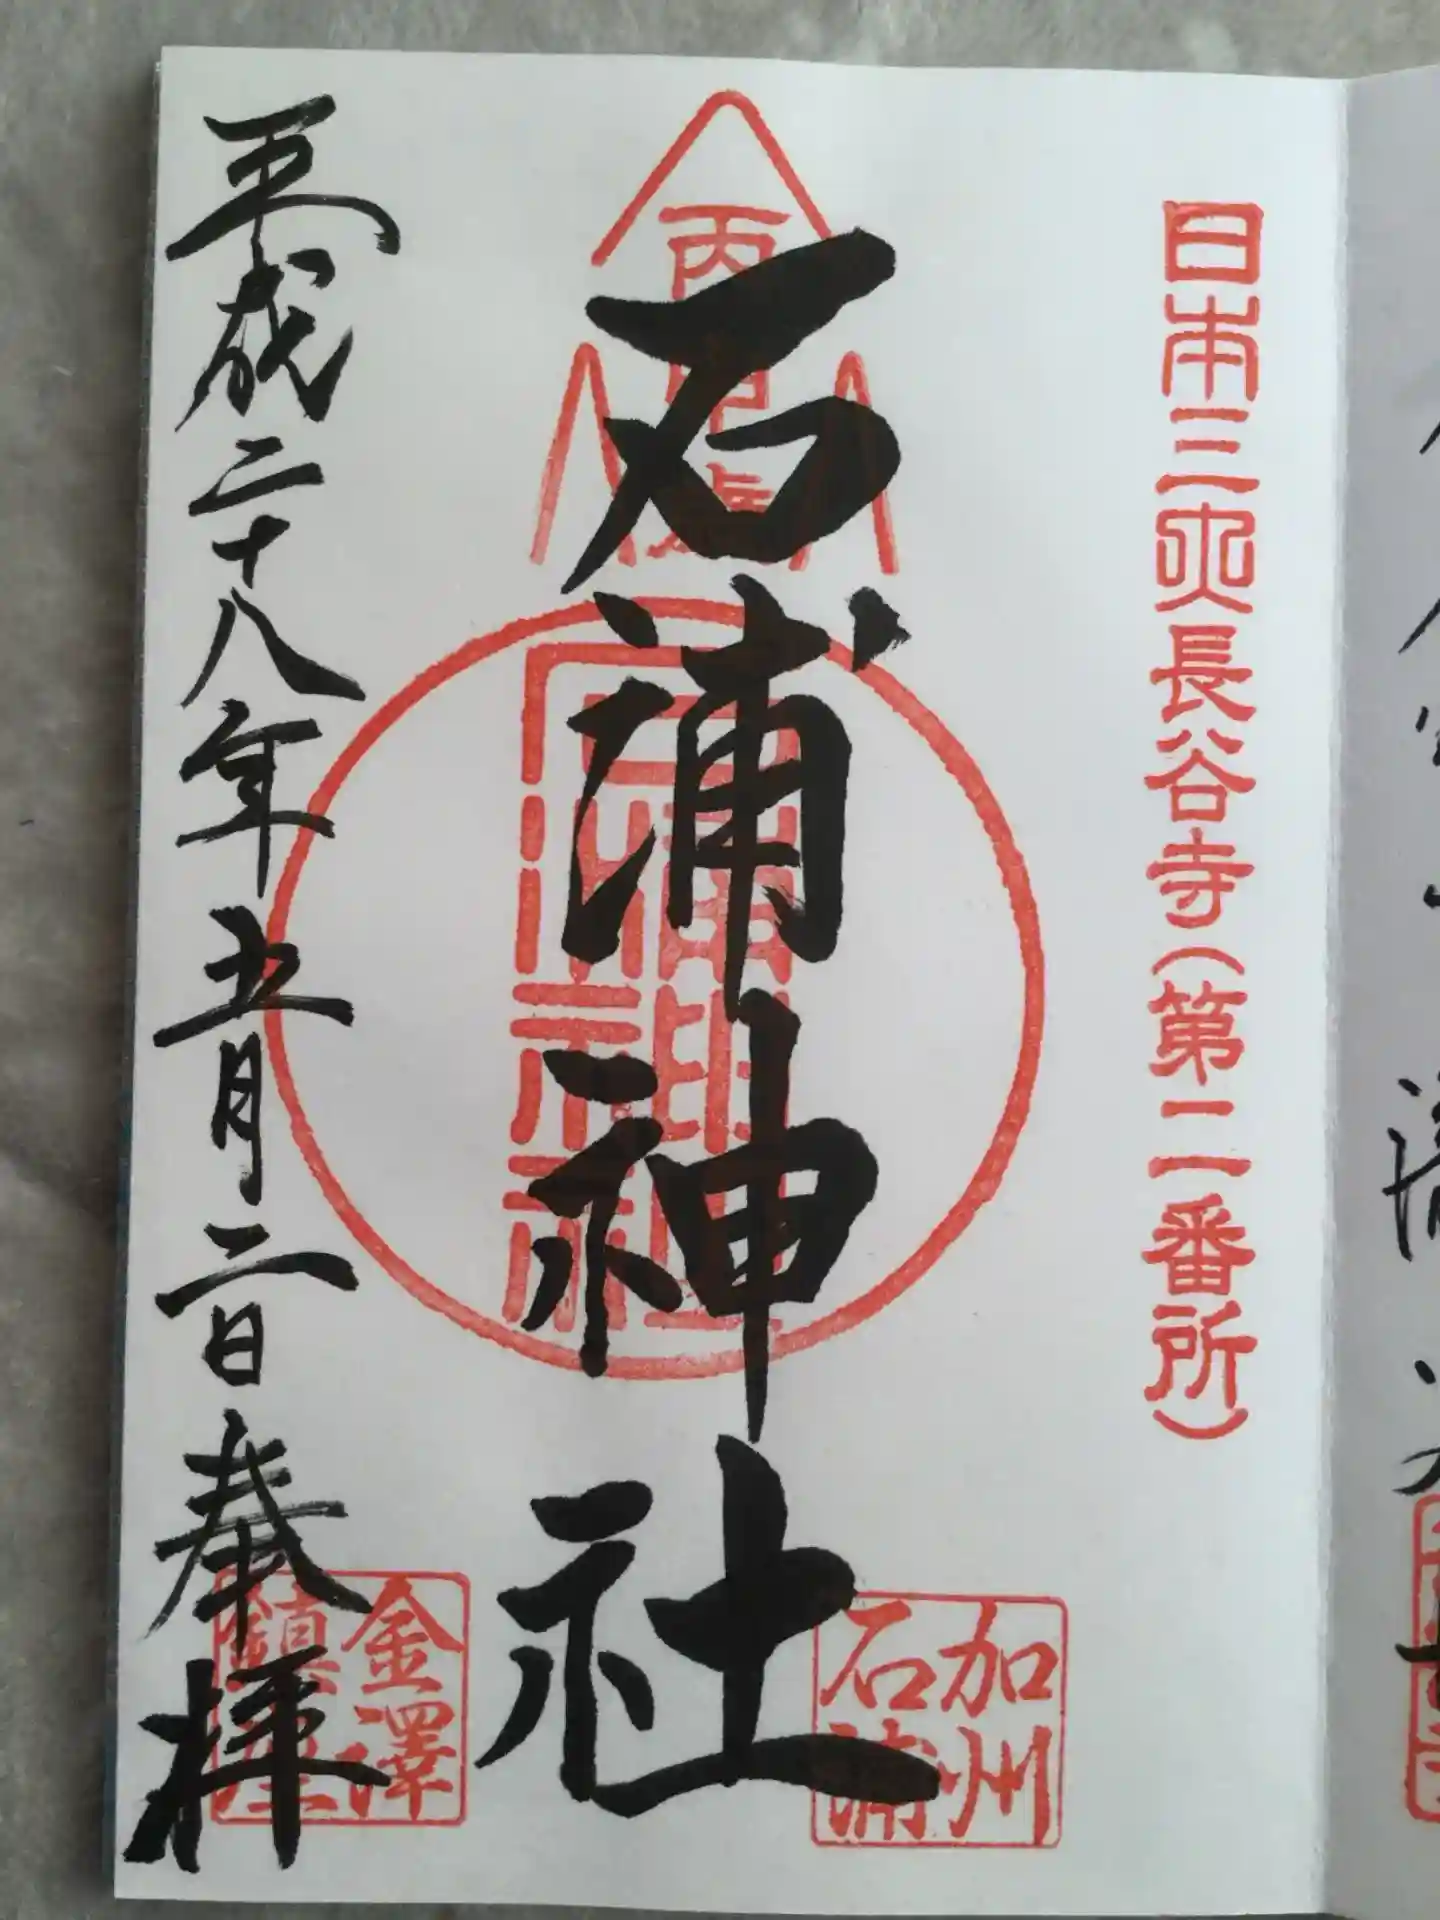 日本三大長谷寺(第二番所)
石浦神社
石浦神社
加州
石浦
平成二十八年五月二日奉拝
金澤
鎮座